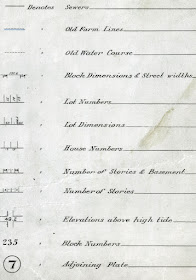 Denotes Sewers
" Old Farm Lines
" Old Water Course
" Block Dimensions & Street widths
" Lot Numbers
" Lot Dimensions
" House Numbers
" Number of Stories & Basement
" Number of Stories
" Elevations above high tide
235 " Block Numbers
7 " Adjoining Plate